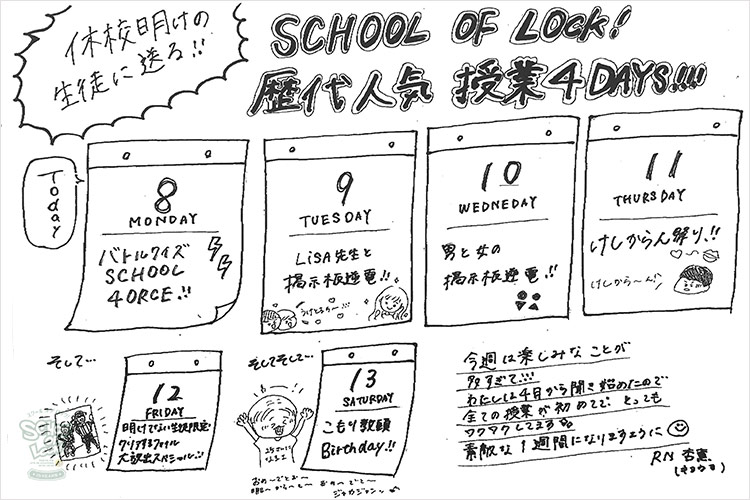 休校明けの
生徒に送る!!
SCHOOL OF LOCK!
歴代人気 授業4DAYS!!!!
Today
8
MONDAY
バトルクイズ
SCHOOL
4ORCE!!
9
TUESDAY
LiSA先生と
掲示板逆電!!
うけとろう〜!!!
10
WEDNEDAY
男と女の
掲示板逆電!!
11
THURSDAY
けしからん祭り!!
けしから〜ん!!
そして…
12
FRIDAY
明けてない生徒限定・
クリアするファイル
大放出スペシャル!!
そしてそして…
13
SATURDAY
こもり教頭
Birthday!!
おめ〜でとお〜
ジャカジャン〜
今週は楽しみなことが
多すぎて!!!
わたしは4日から聞き始めたので
全ての授業が初めてで、とっても
ワクワクしてます
素敵な1週間になりますように
RN 杏恵